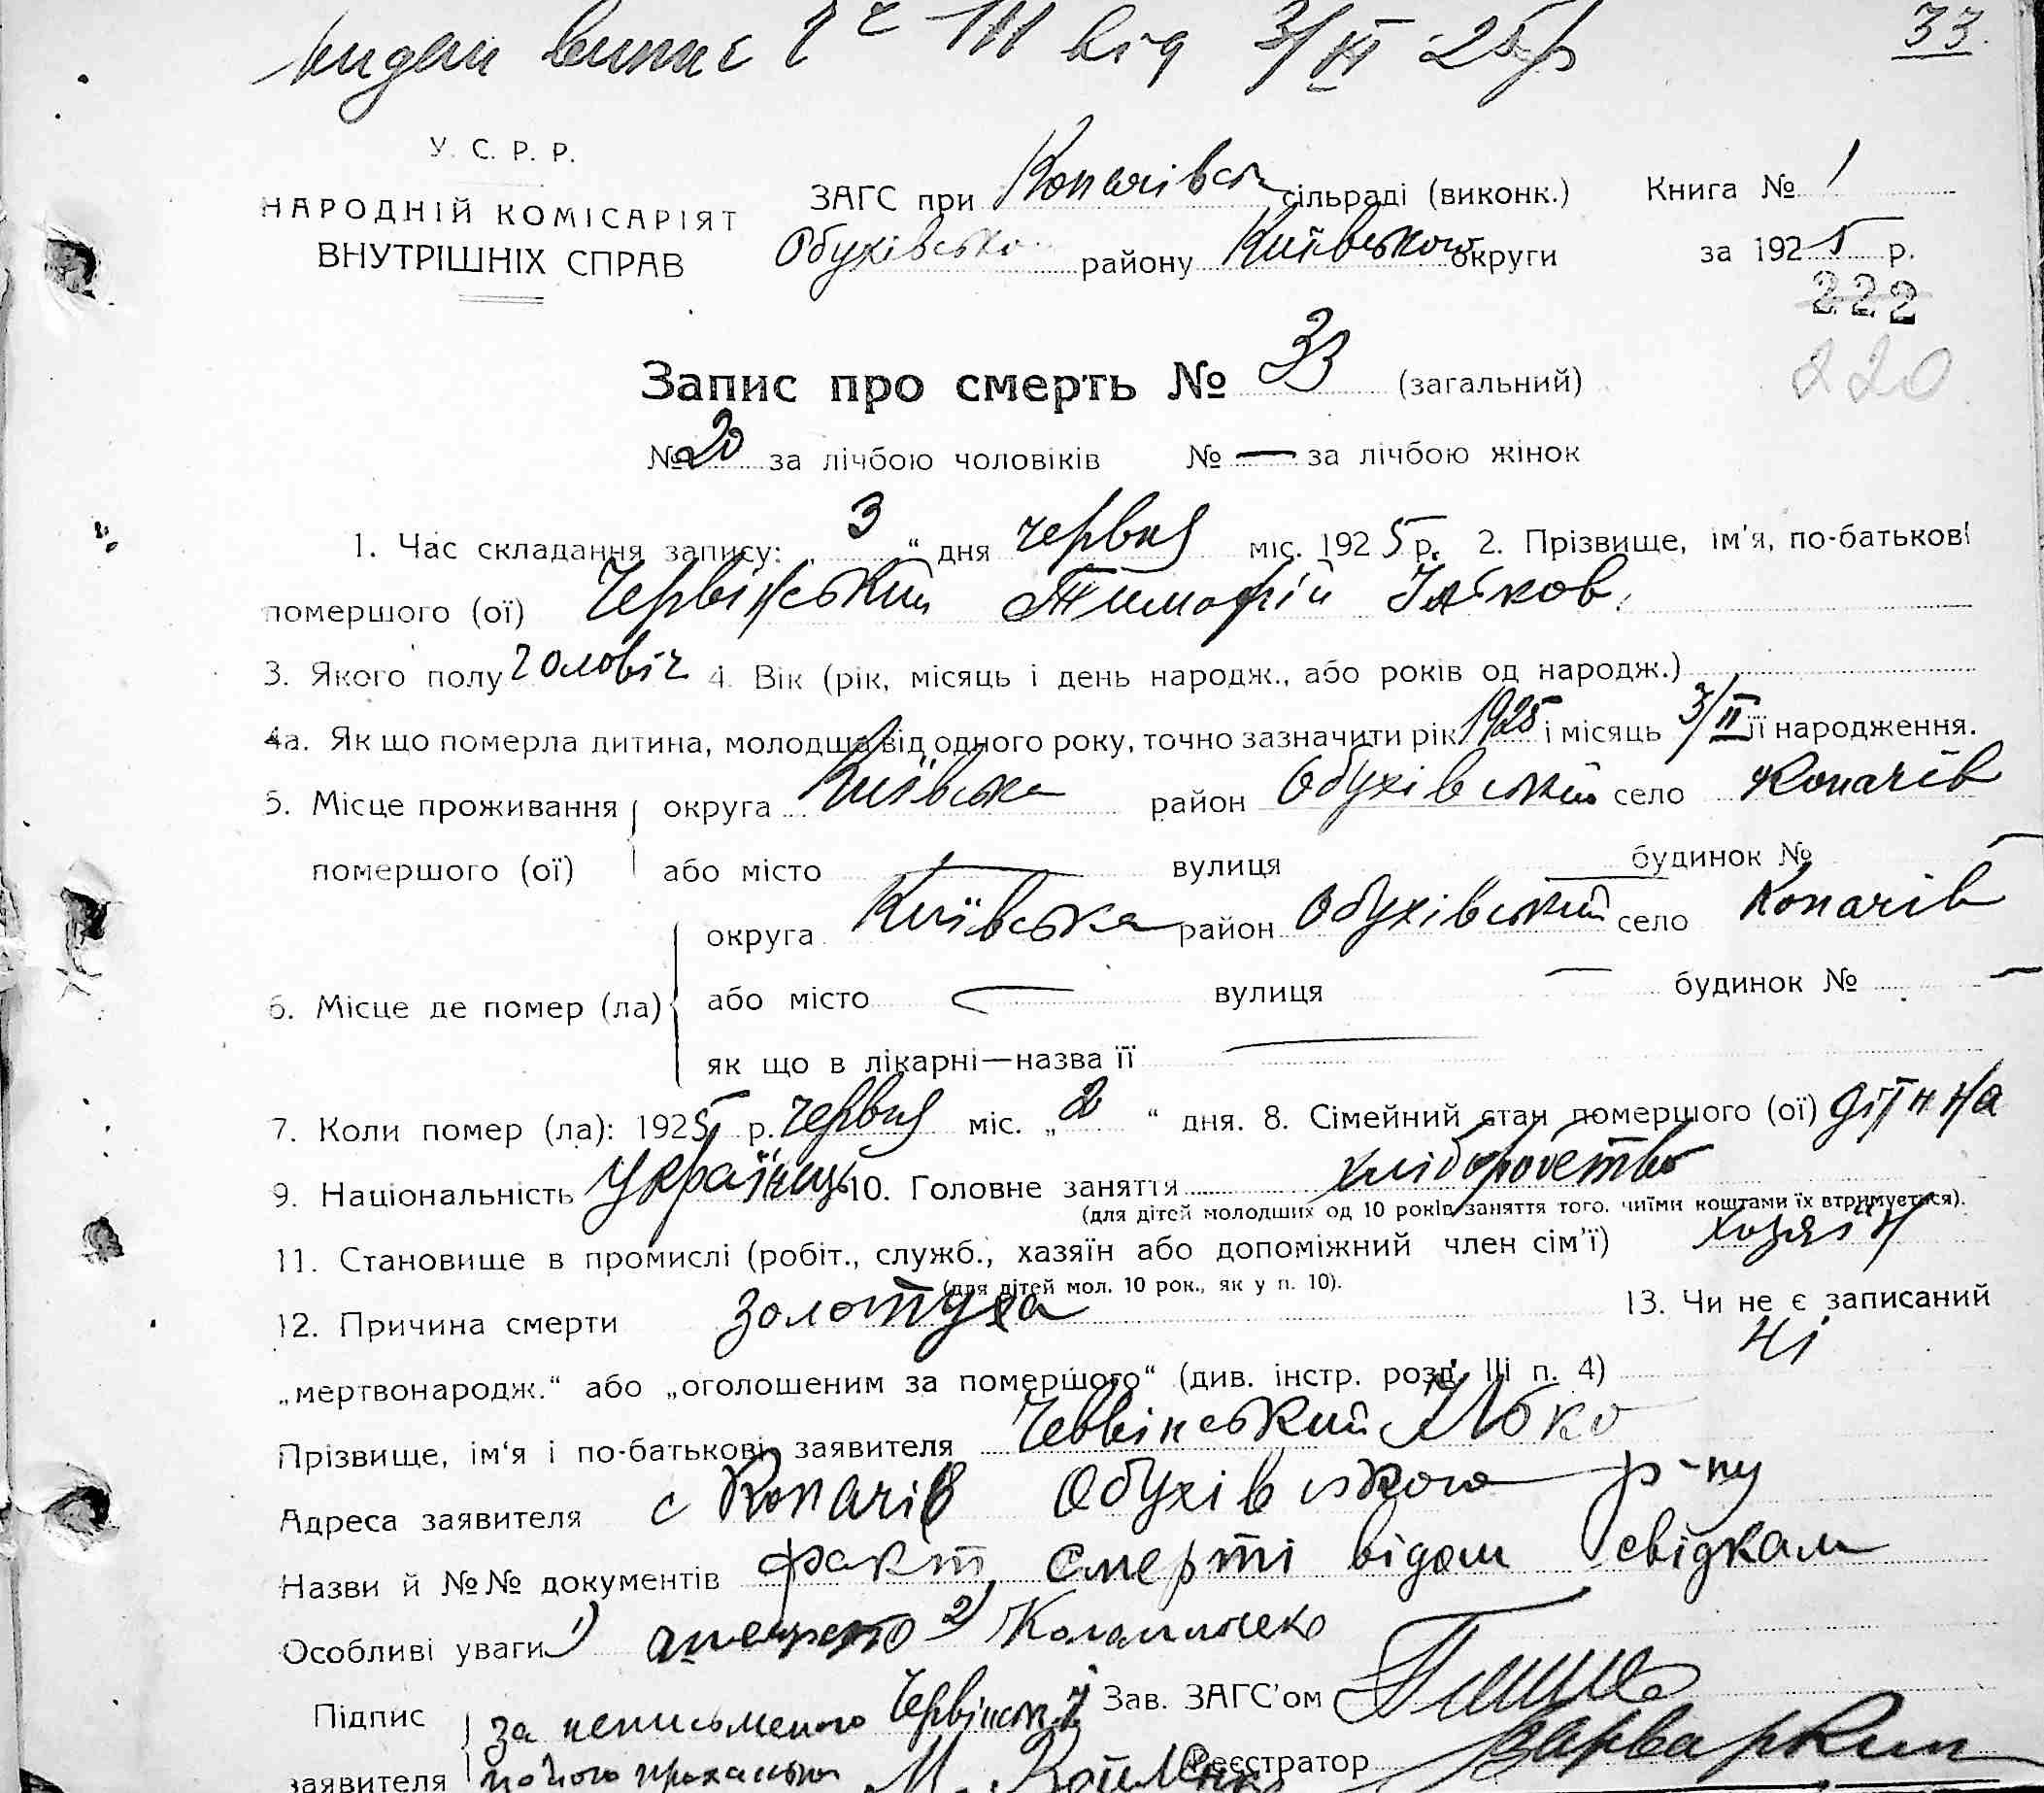 видан випис від 3/XI 25р
33.
У. С. Р. Р.
НАРОДНІЙ КОМІСАРІЯТ
ВНУТРІШНІХ СПРАВ
ЗАГС при Копачівськ сільраді (виконк.) Книга № 1
Обухівсько району Київського округи за 1925 р.
222
220
Запис про смерть № 33 (загальний)
№ 20 за лічбою чоловіків № — за лічбою жінок
1. Час складання запису: 3 “ дня червня міс. 1925 р. 2. Прізвище, ім'я, по-батькові
помершого (ої) Червінський Тимофій Яћков.
3. Якого полу чоловіч 4. Вік (рік, місяць і день народж., або років од народж.)
4а. Як що померла дитина, молодша від одного року, точно зазначити рік 1925 і місяць 3/II її народження.
5. Місце проживання округа Київська район Обухівський село Копачів
помершого (ої) або місто — вулиця — будинок № —
округа Київська район Обухівський село Копачів
6. Місце де помер (ла) або місто — вулиця — будинок № —
як що в лікарні—назва її —
7. Коли помер (ла): 1925 р. червня міс. „ 2 “ дня. 8. Сімейний стан помершого (ої) дітина
9. Національність Українець 10. Головне заняття хліборобство
(для дітей молодших од 10 років заняття того, чиїми коштами їх втримується).
11. Становище в промислі (робіт., служб., хазяїн або допоміжний член сім'ї) хозяїн
(для дітей мол. 10 рок., як у п. 10).
12. Причина смерти золотуха 13. Чи не є записаний
„мертвонародж.“ або „оголошеним за помершого“ (див. інстр. розд. III п. 4) ні
Прізвище, ім'я і по-батькові заявителя Червінський
Адреса заявителя с Копачів Обухівського р-ну
Назви й №№ документів факт смерті відом свідкам
Особливі уваги 1) 2)
Підпис за неписьменого Червінськ Зав. ЗАГС'ом
заявителя по його проханню М. Реєстратор